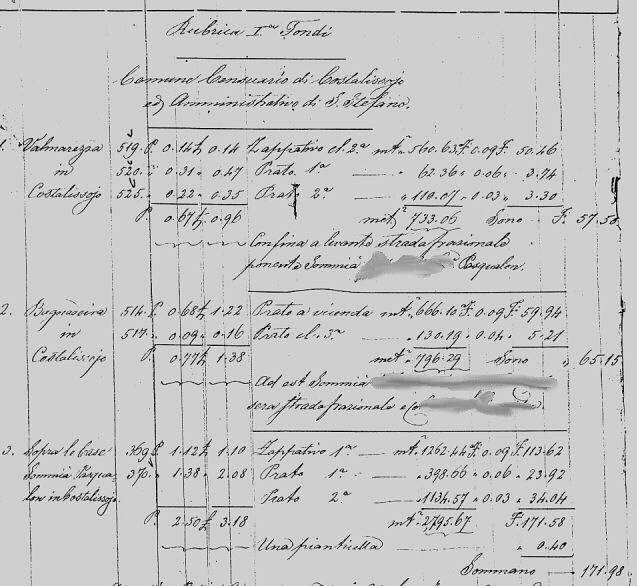 Rubrica Iª Fondi
Comune Censuario di Costalissojo
ed Amministrativo di S. Stefano.
1. Valmarezza 519. P. 0.14 L. 0.14 Zappativo cl. 2ª mti 560.63 F. 0.09 F. 50.46
in 520. " 0.31 " 0.47 Prato 1ª — " 62.36 " 0.06 " 3.74
Costalissojo 525. " 0.22 " 0.35 Prato 2ª — " 110.07 " 0.03 " 3.30
P. 0.67 L. 0.96 met. 733.06 Sono F. 57.50
Confina a levante strada frazionale
ponente Sommià Pasqualon.
2. 514. P. 0.68 L. 1.22 Prato a vicenda mti 666.10 F. 0.09 F. 59.94
in 517. " 0.09 " 0.16 Prato cl. 3ª — " 130.19 " 0.04 " 5.21
Costalissojo P. 0.77 L. 1.38 met. 796.29 Sono " 65.15
Ad est Sommià
sera strada frazionale e
3. Sopra le Case 369. P. 1.12 L. 1.10 Zappativo 1ª — mti 1262.44 F. 0.09 F. 113.62
Sommià Pasqua- 370. " 1.38 " 2.08 Prato 1ª — " 398.66 " 0.06 " 23.92
lon in Costalissojo. Prato 2ª " 1134.57 " 0.03 " 34.04
P. 2.50 L. 3.18 mti 2795.67 F. 171.58
Una pianticella " 0.40
Sommano — 171.98